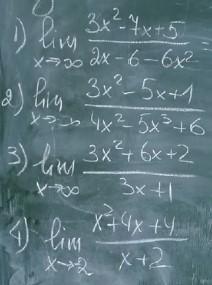 1) lim x→∞ (3x²-7x+5)/(2x-6-6x²) =
2) lim x→-∞ (3x²-5x+1)/(4x²-5x³+6)
3) lim x→∞ (3x²+6x+2)/(3x+1)
4) lim x→-2 (x²+4x+4)/(x+2)